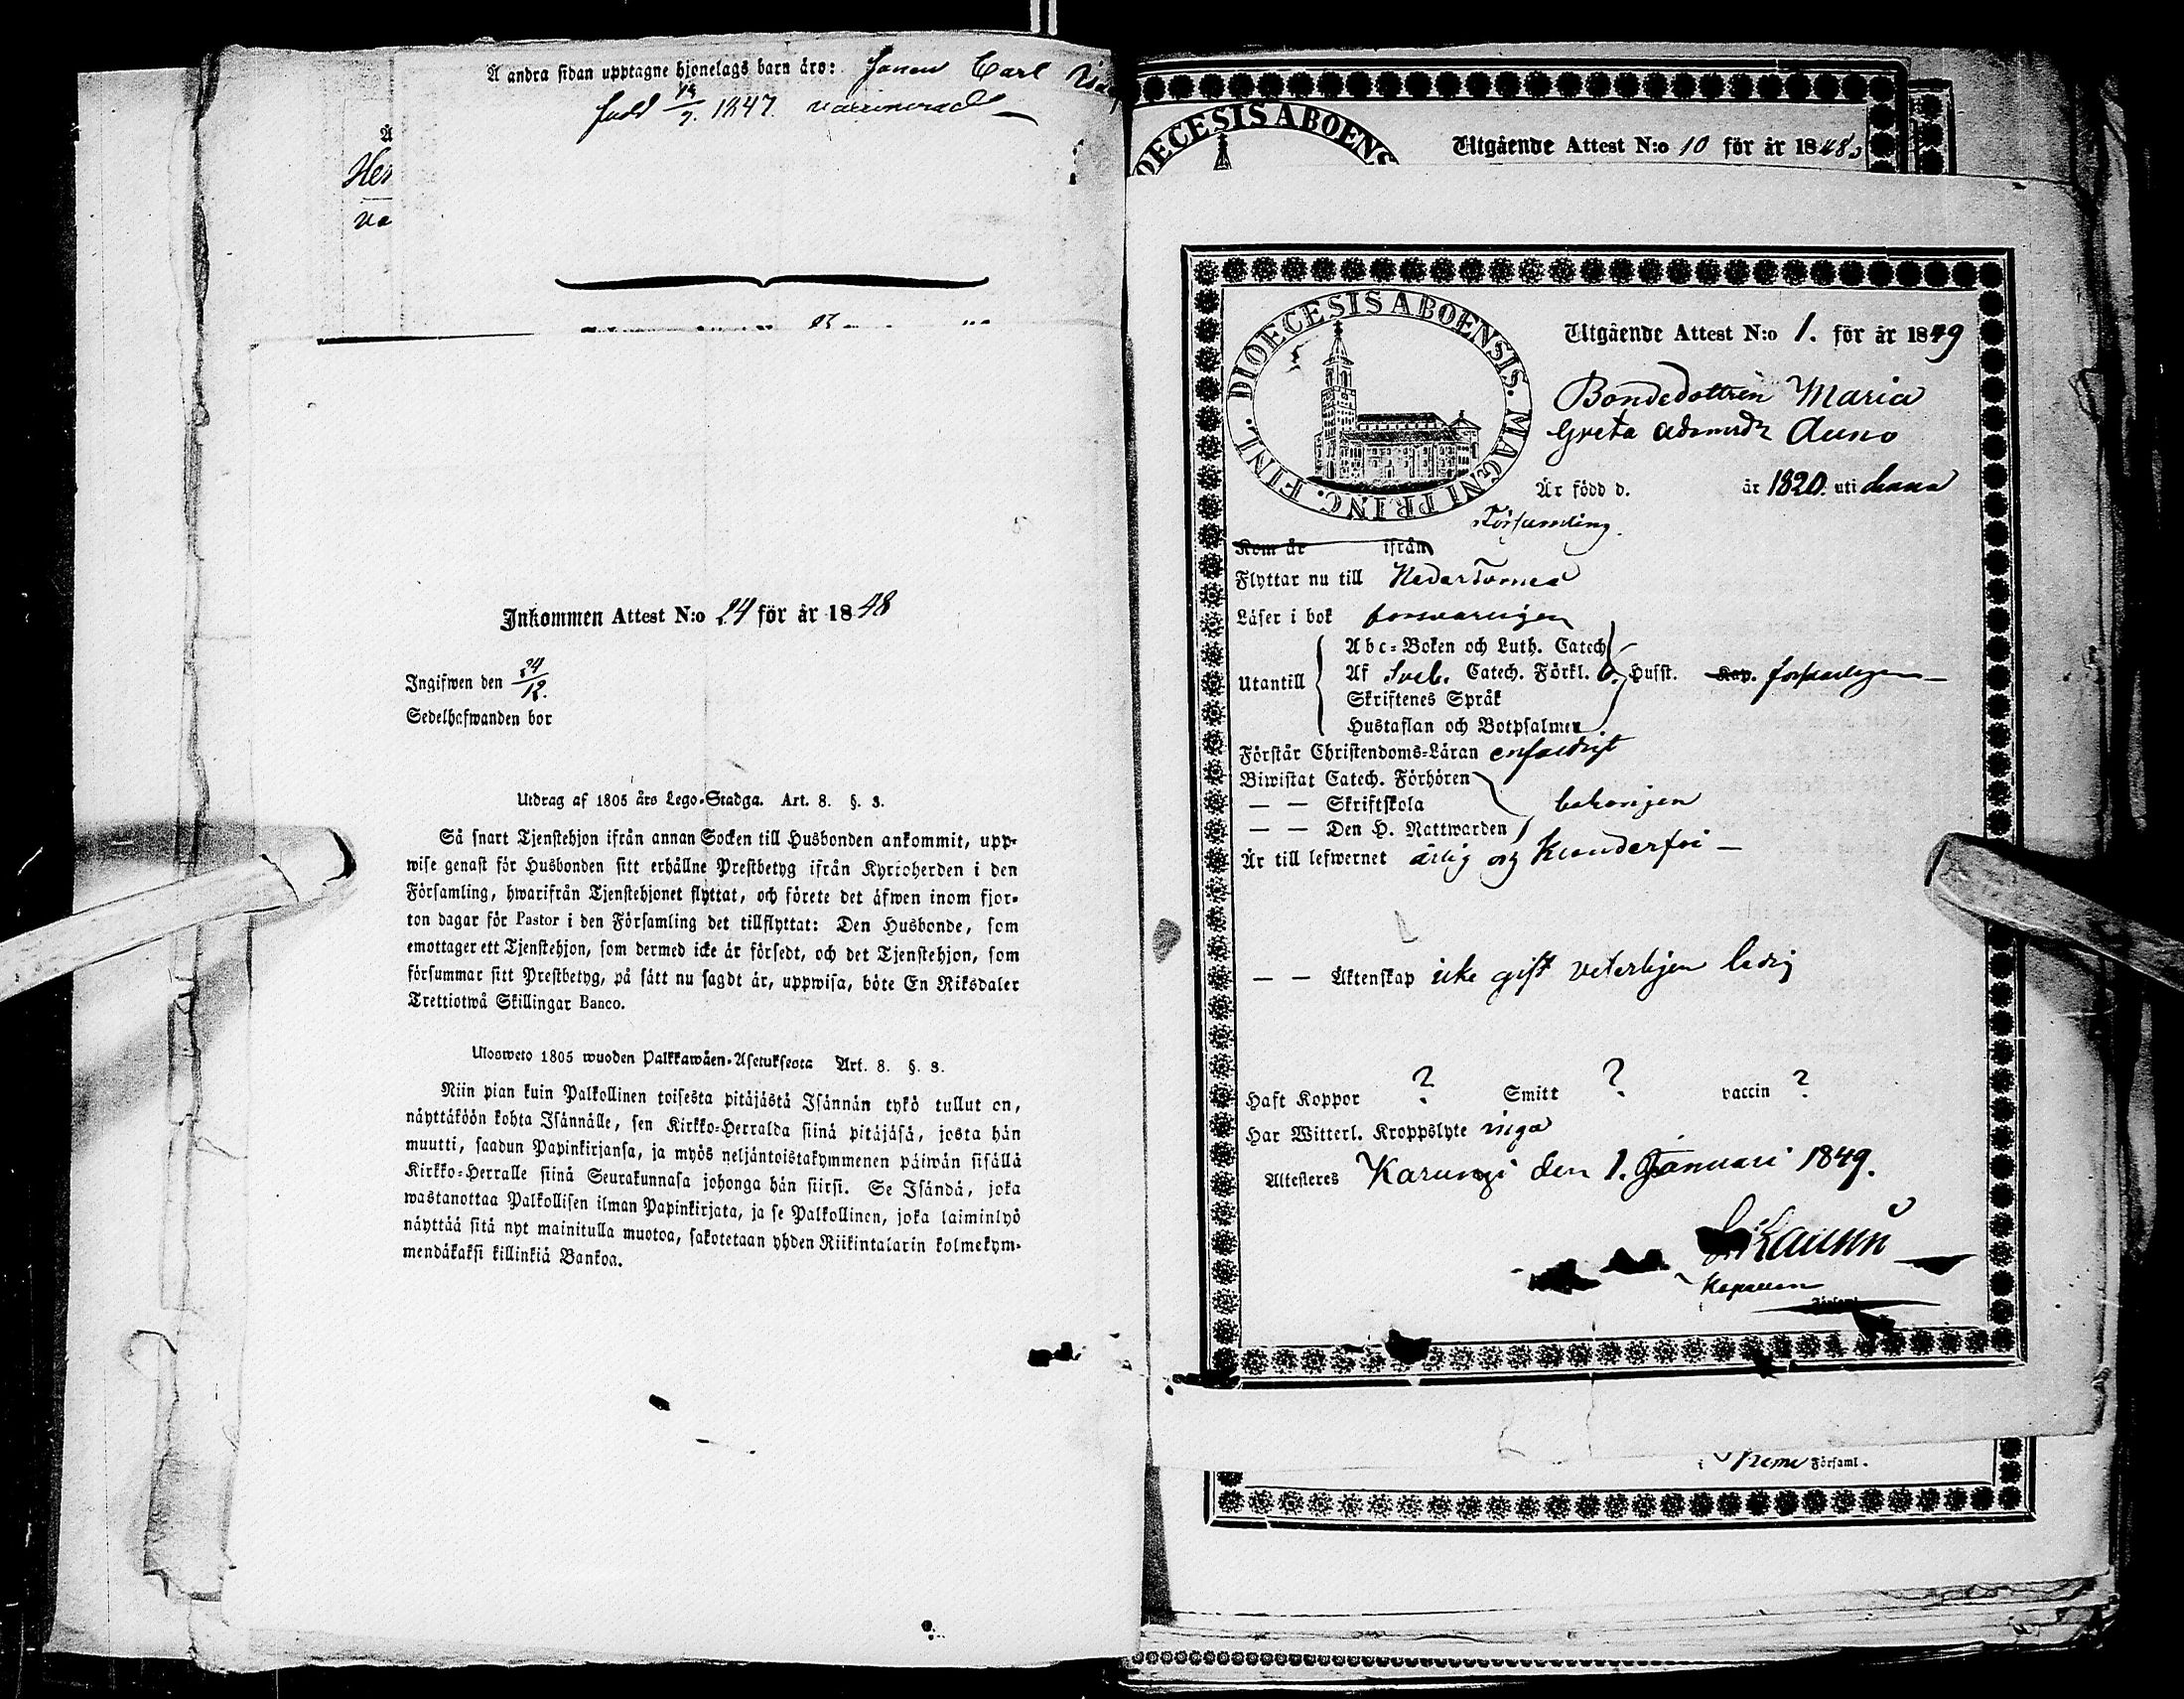 Å andra sidan upptagne hjonelags barn äro: Carl
född 1847. vaccinerad
Her
va
Inkommen Attest N:o 24 för år 1848
Ingifwen den 24/12.
Sedelhafwanden bor
Utdrag af 1805 års Lego-Stadga. Art. 8. §. 3.
Så snart Tjenstehjon ifrån annan Socken till Husbonden ankommit, upp-
wise genast för Husbonden sitt erhållne Prestbetyg ifrån Kyrkoherden i den
Församling, hwarifrån Tjenstehjonet flyttat, och förete det äfwen inom fjor-
ton dagar för Pastor i den Församling det tillflyttat: Den Husbonde, som
emottager ett Tjenstehjon, som dermed icke är försedt, och det Tjenstehjon, som
försummar sitt Prestbetyg, på sätt nu sagdt är, uppwisa, böte En Riksdaler
Trettiotwå Skillingar Banco.
Ulosweto 1805 wuoden Palkkawäen-Asetuksesta Art. 8. §. 3.
Niin pian kuin Palkollinen toisesta pitäjästä Isännän tykö tullut on,
näyttäköön kohta Isännälle, sen Kirkko-Herralda siinä pitäjäsä, josta hän
muutti, saadun Papinkirjansa, ja myös neljäntoistakymmenen päiwän sisällä
Kirkko-Herralle siinä Seurakunnasa johonga hän siirsi. Se Isändä, joka
wastanottaa Palkollisen ilman Papinkirjata, ja se Palkollinen, joka laiminlyö
näyttää sitä nyt mainitulla muotoa, sakotetaan yhden Riikintalarin kolmekym-
mendäkaksi killinkiä Bankoa.
DIOECESIS ABOENS
Utgående Attest N:o 10 för år 1848
DIOECESIS ABOENSIS. MAGNI PRINC. FINL.
Utgående Attest N:o 1. för år 1849
Bondedottren Maria
Greta Adamsdr Auno
Är född d. år 1820. uti
Församling.
Kom år ifrån
Flyttar nu till NederTornea
Läser i bok försvarligen
Utantill
Abc-Boken och Luth. Catech
Af Sveb. Catech. Förkl. Hufst. Kap. försvarligen
Skriftenes Språk
Hustaflan och Botpsalmen
Förstår Christendoms-Läran enfaldigt
Biwistat Catech. Förhören
— — Skriftskola behörigen
— — Den H. Nattwarden
Är till lefwernet ärlig och klanderfri —
— — Äktenskap icke gift veterligen ledig
Haft Koppor ? Smitt ? vaccin ?
Har Witterl. Kroppslyte inga
Attesteres Karungi den 1. Januari 1849.
Kapellan
Förfaml.
i Kemi Församl.